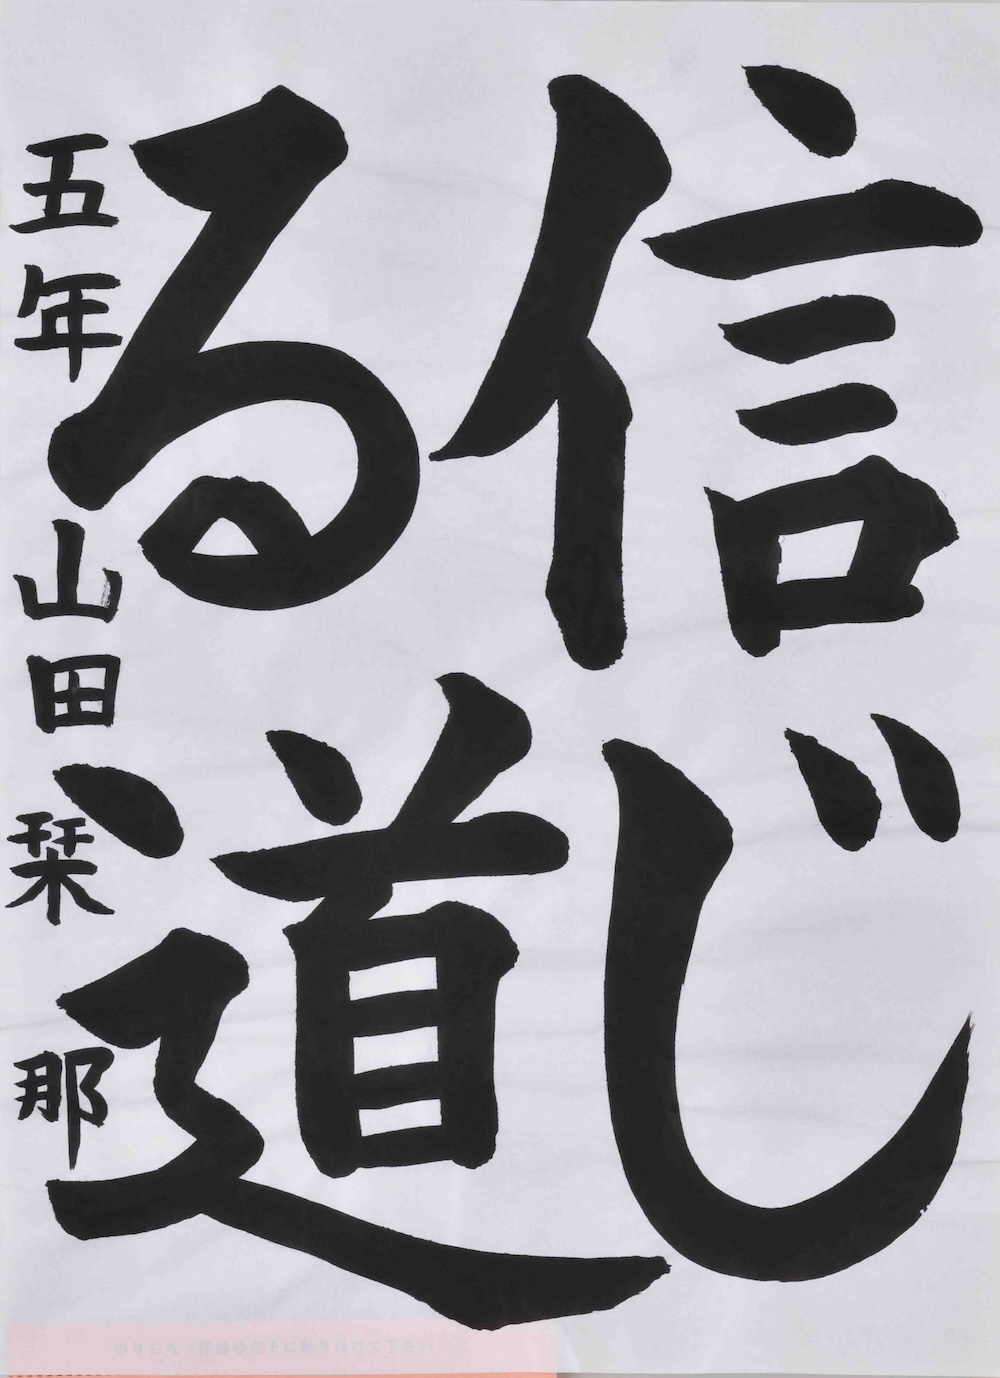 信じ
る道
五年山田栞那
のりしろ（作品の右下に貼り付けて下さい）